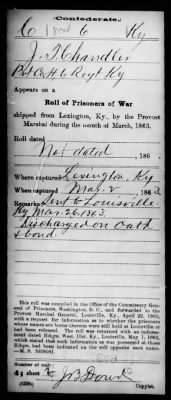 Confederate.
C 6 Ky
J. T. Chandler
Pvt Co. H. 6 Regt Ky
Appears on a
Roll of Prisoners of War
shipped from Lexington, Ky., by the Provost
Marshal during the month of March, 1863.
Roll dated
Not dated, 186
Where captured Lexington, Ky
When captured Mar. 2, 1863.
Remarks: Sent to Louisville
Ky Mar. 26, 1863.
Discharged on oath
& bond.
This roll was compiled in the Office of the Commissary General
of Prisoners, Washington, D. C., and forwarded to the
Provost Marshal General, Louisville, Ky., April 22, 1863,
with request for information as to whether the prisoners
whose names are borne thereon were still held at Louisville or
had been released. The roll was returned with an
Louisville, Ky., May 1, 1863,
which stated that such information as was possessed at those
Hdqrs. had been indicated on the roll opposite each name.
Number of roll:
sheet
J. B. Dowd
Copyist.